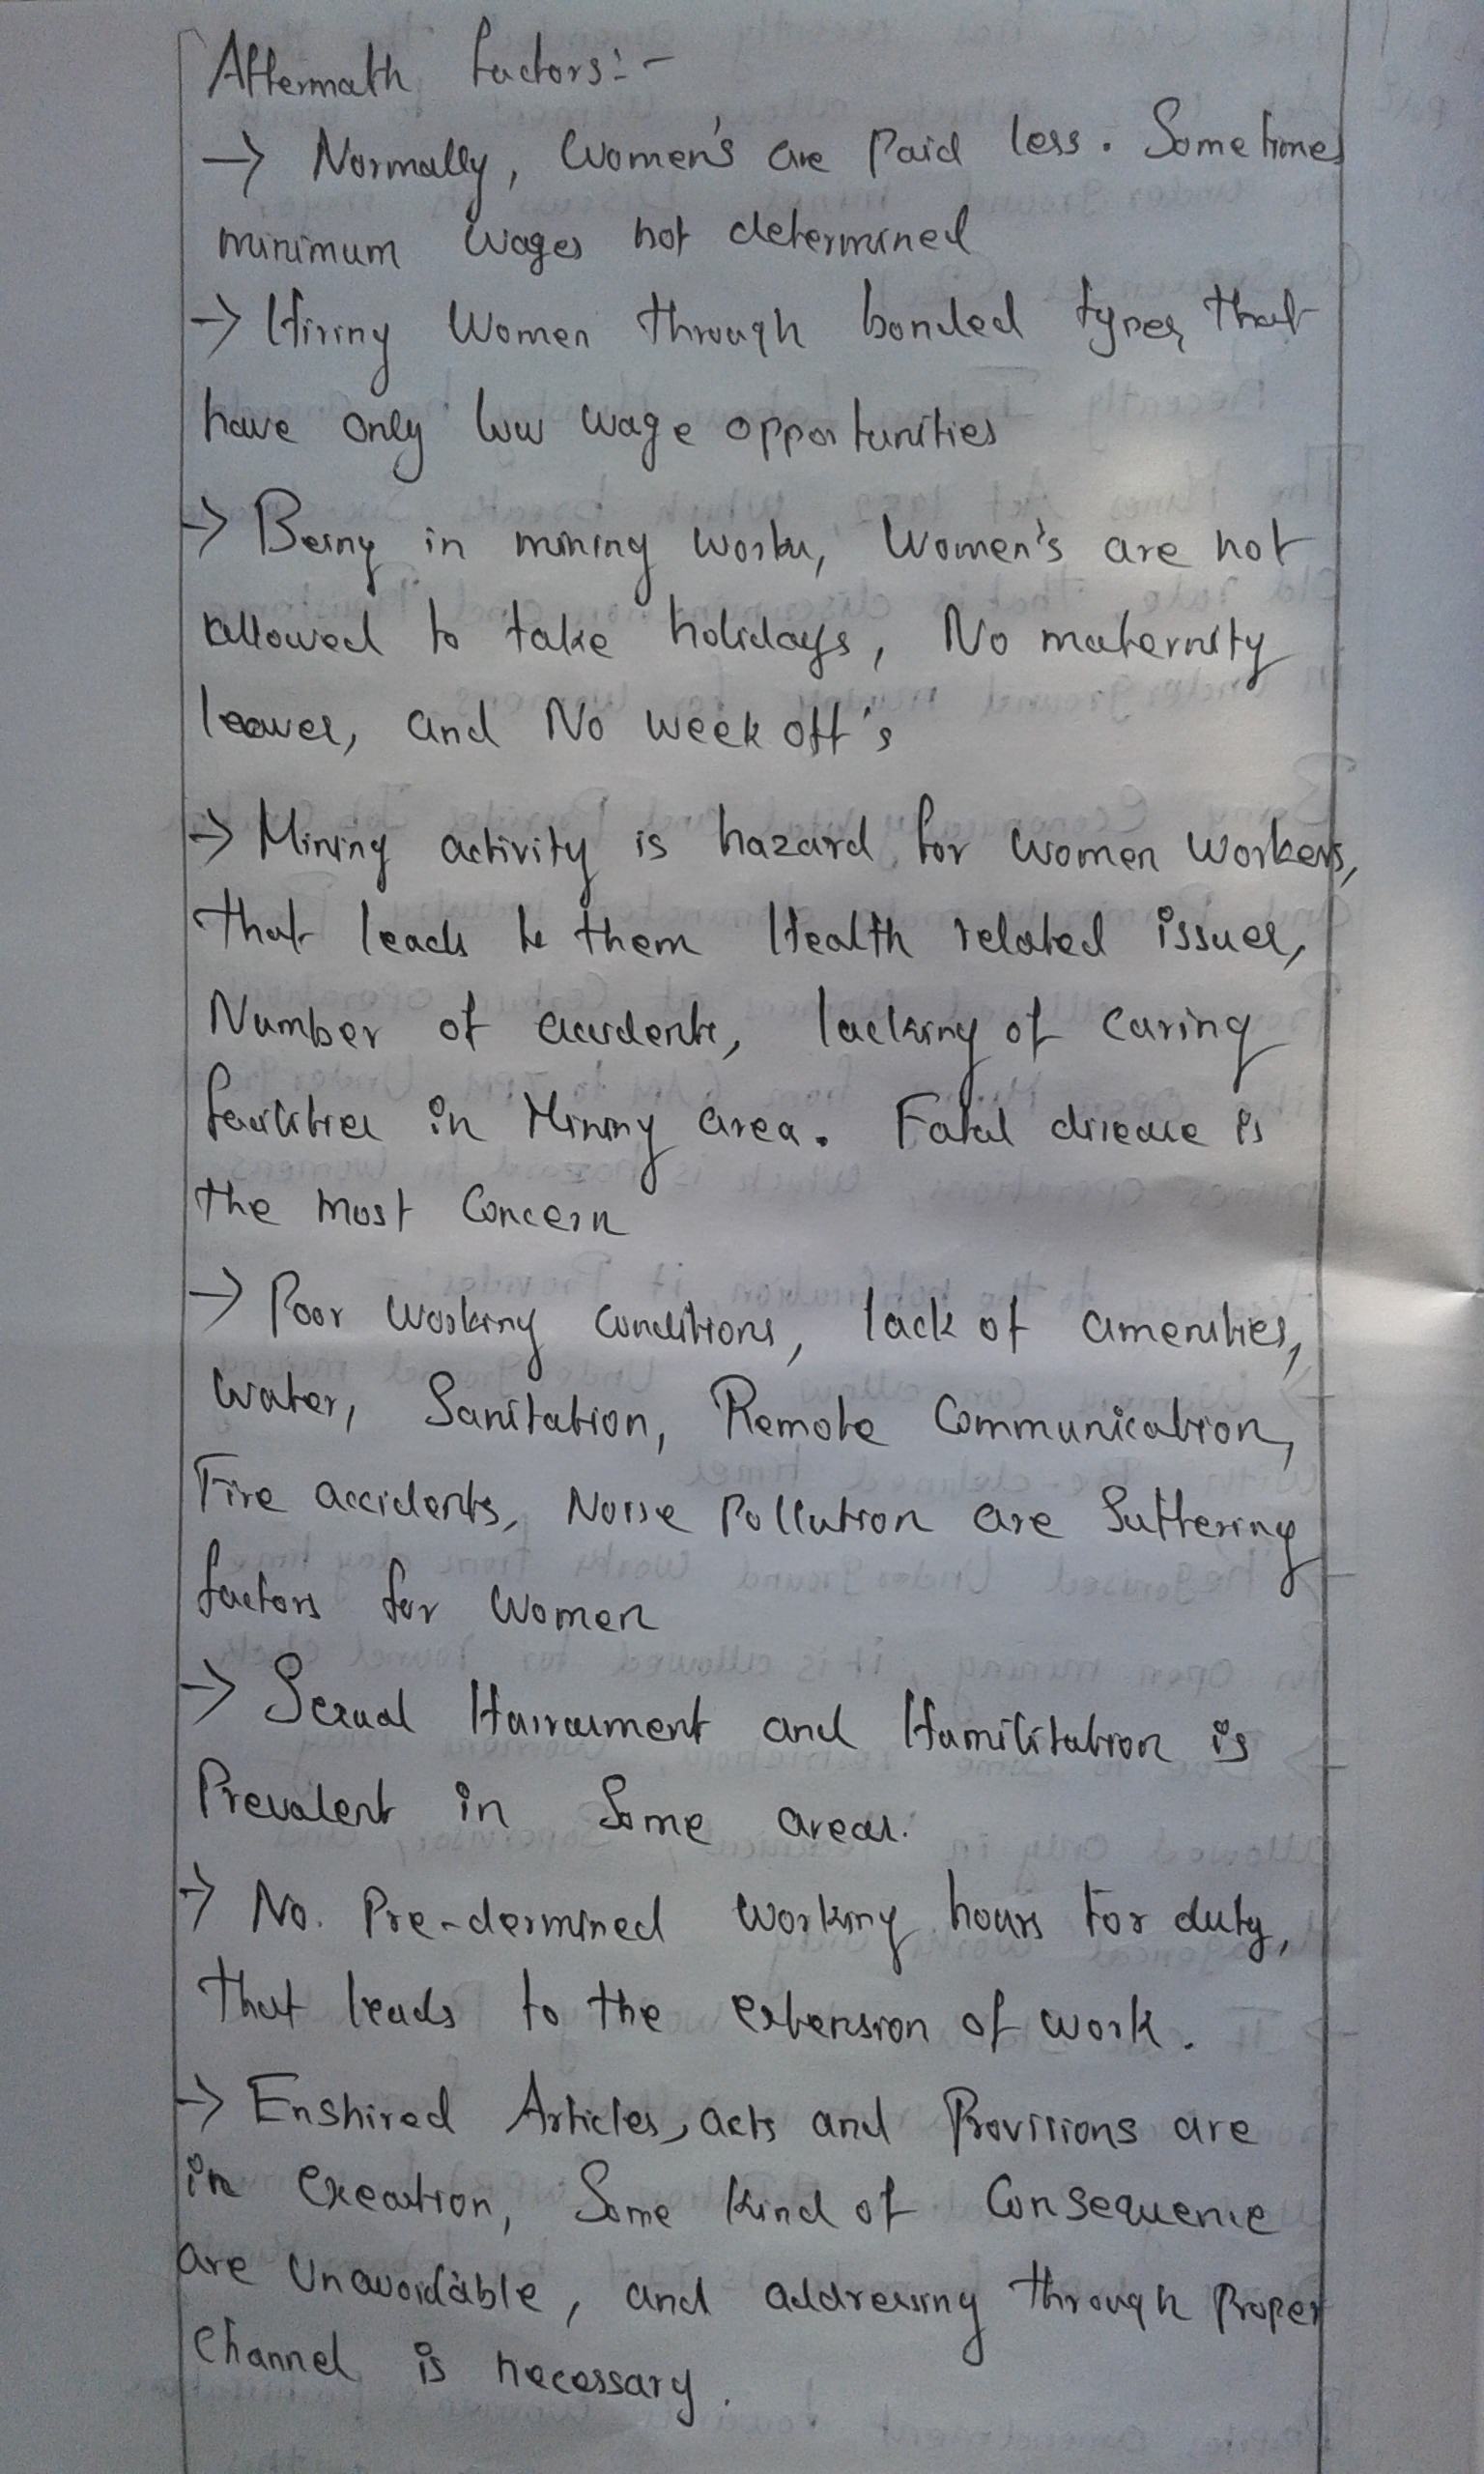 Aftermath factors:-
→ Normally, Women's are Paid less. Sometimes
minimum wages not determined
→ Hiring Women through bonded types, that
have only low wage opportunities
→ Being in mining works, Women's are not
allowed to take holidays, No maternity
leaves, and No week off's
→ Mining activity is hazard for Women Workers,
that leads to them Health related issues,
Number of accidents, lacking of caring
facilities in Mining area. Fatal disease is
the most Concern
→ Poor Working Conditions, lack of amenities,
Water, Sanitation, Remote Communication,
Fire accidents, Noise Pollution are Suffering
factors for Women
→ Sexual Harrasment and Humilitation is
Prevalent in Some areas.
→ No. Pre-dermined Working hours for duty,
that leads to the extension of work.
→ Enshired Articles, acts and Provisions are
in Execution, Some Kind of Consequence
are Unavoidable, and addressing through Proper
Channel is necessary.